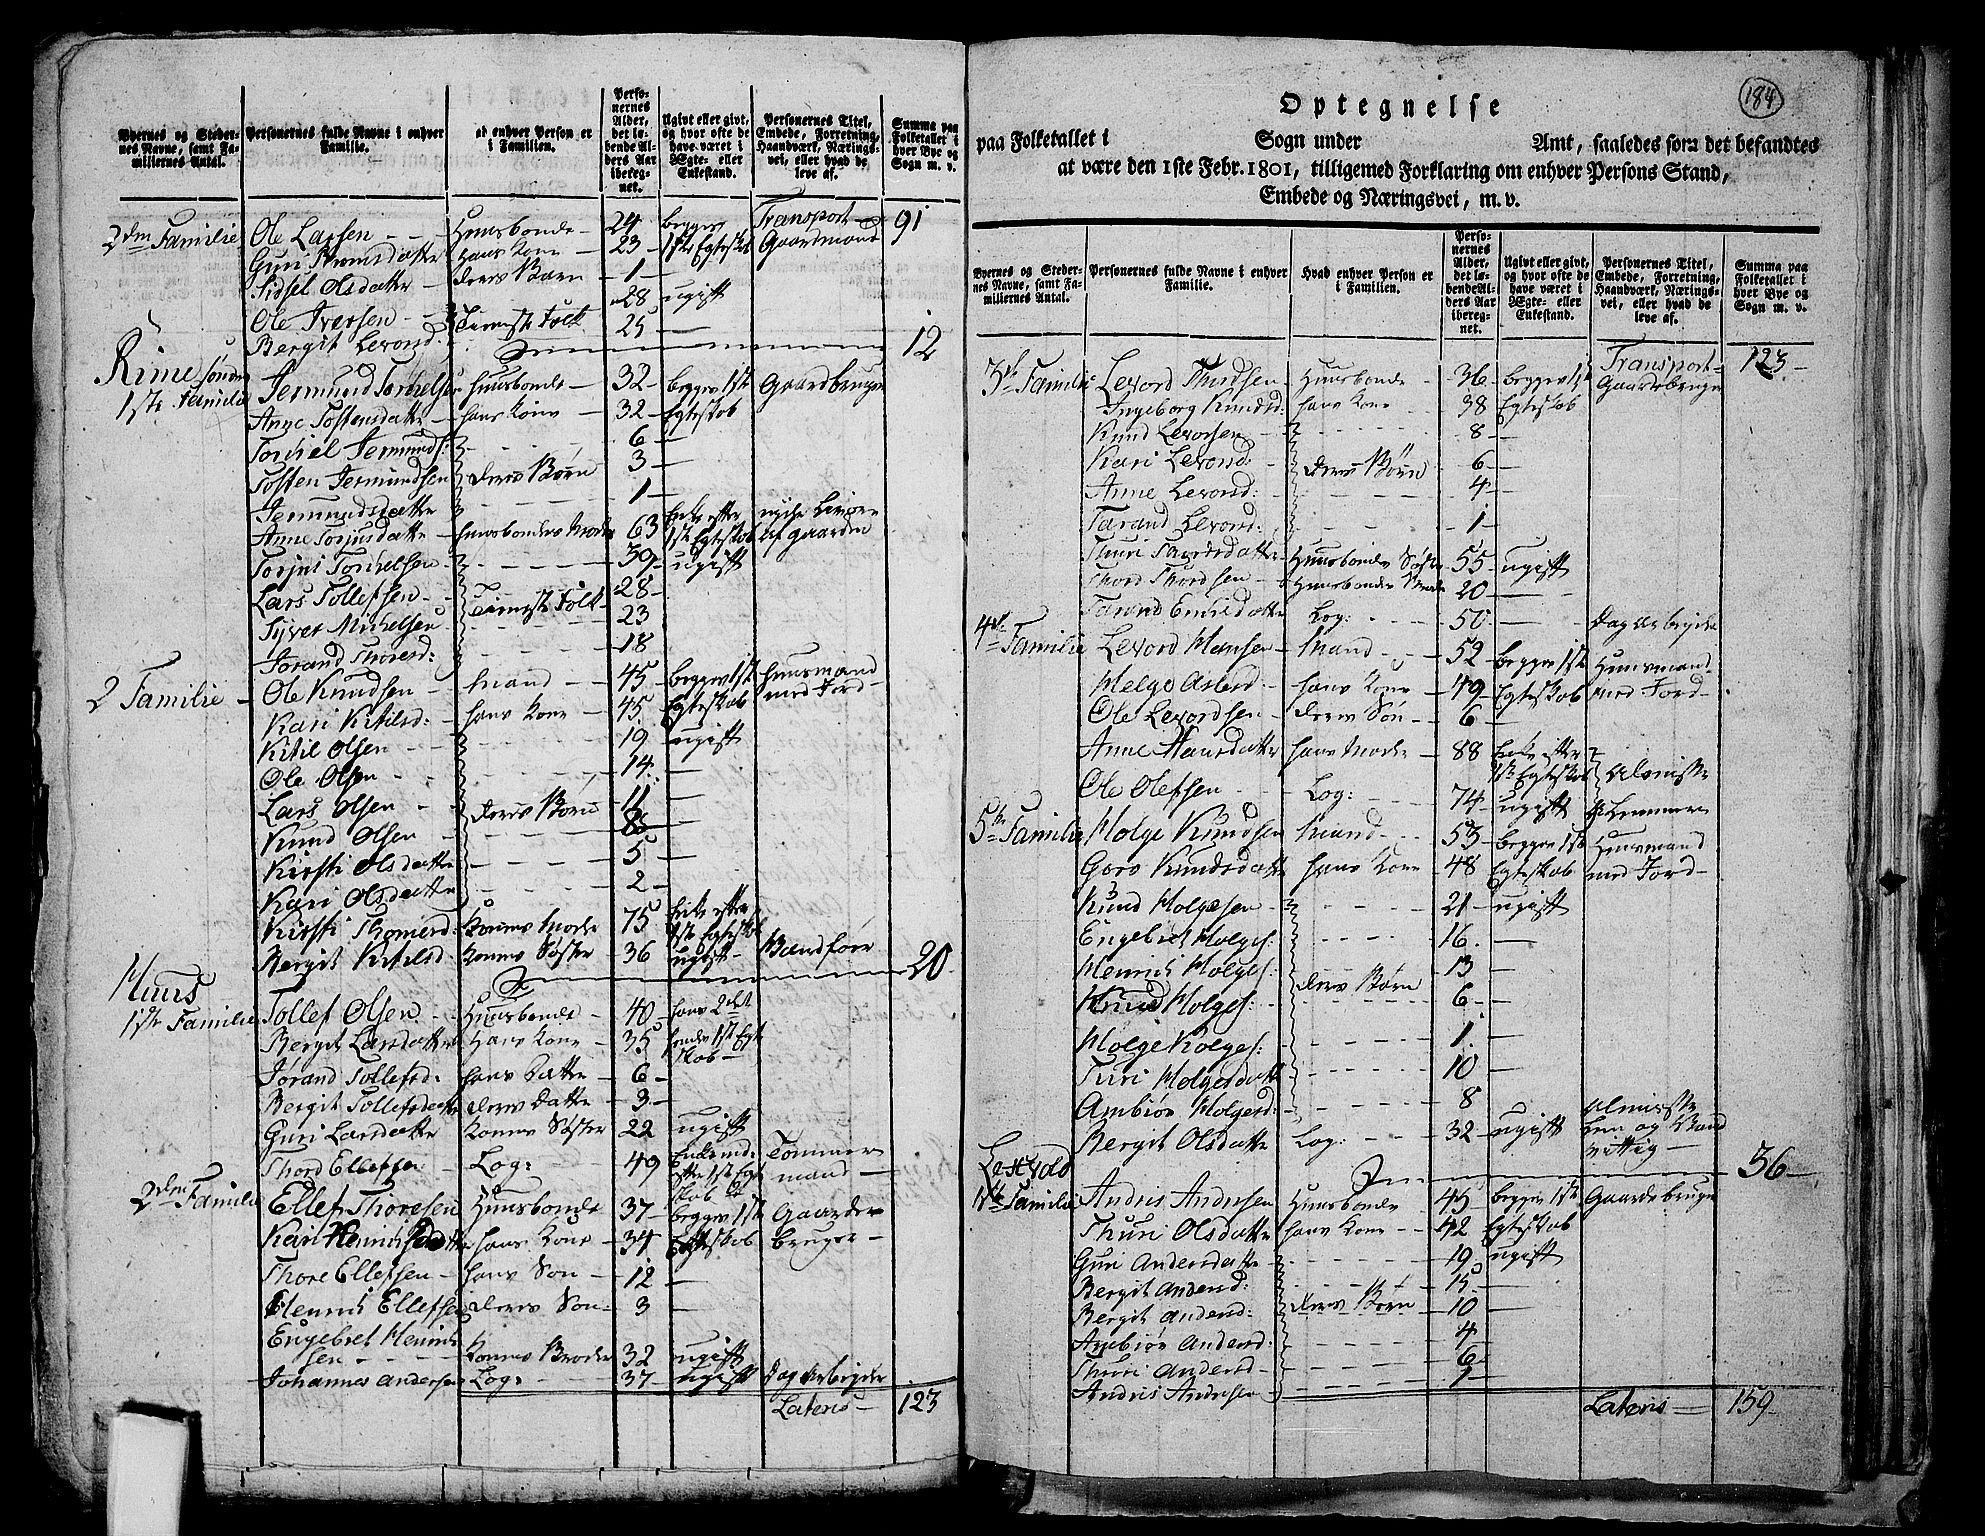 Byernes og Stedernes Navne, samt Familiernes Antal.
Personernes fulde Navne i enhver Familie.
ad enhver Person er i Familien.
Personernes Alder, det løbende Alders Aar iberegnet.
Ugivt eller givt, og hvor ofte de have været i Egte- eller Enkestand.
Personernes Titel, Embede, Forretning, Haandværk, Næringsvei, eller hvad de leve af.
Summa paa Folketallet i hver Bye og Sogn m. v.
Transport 91
2den Familie Ole Larsen Huusbonde 24 begge 1ste Egteskab Gaardmand
Guri Thomsdatter hans Kone 23
Sidsel Olsdatter deres Barn 1
Ole Iversen Tienistefolk 28 ugift
Bergit Levord: 25 12
Rime søndre
1ste Familie Jermund Torkelsen Huusbonde 32 begges 1ste Egteskab Gaardbruger
Anne Tostensdatter hans Kone 32
Torkiel Jermunds: 6
Tosten Jermundsen deres Børn 3
Jermundsdatter 1
Anne Torjusdatter Huusbondes Moder 63 Enke efter 1ste Egteskab af Gaarden
Torjus Torkelsen 39 ugift
Lars Tollefsen Tieniste Folk 28
Syver Mikkelsen 23
Jorand Thoresd: 18
2 Familie Ole Knudsen Mand 45 begges 1ste Egteskab Huusmand med Jord
Kari Kitilsd: hans Kone 45
Kitil Olsen 19 ugift
Ole Olsen 14
Lars Olsen deres Børn 11
Knud Olsen 8
Kirsti Olsdatter 5
Kari Olsdatter 2
Kirsti Thomesd: Konens Moder 75 Enke efter 1ste Egteskab
Bergit Kitilsd: Konens Søster 36 ugift 20
Huus
1ste Familie Tollef Olsen Huusbonde 40 hans 2det
Bergit Larsdatter Hans Kone 35 hendes 1ste Egteskab
Jorand Tollefsd: hans Datter 6
Bergit Tollefsdatter deres Datter 3
Guri Larsdatter Konens Søster 22 ugift
Thord Ellefsen Log: 49 Enkemd: efter 1ste Egteskab Tømmermand
2den Familie Ellef Thoresen Huusbonde 37 begges 1ste Egteskab Gaardebruger
Kari Henrichsdatter hans Kone 34
Thore Ellefsen hans Søn 12
Henrich Ellefsen deres Søn 3
Engebret Henrichsen Konens Broder 32 ugift
Johannes Andersen Log: 37 ugift Dagarbejder
Lateris 123
184
Optegnelse
paa Folketallet i Sogn under Amt, saaledes som det befandtes
at være den 1ste Febr. 1801, tilligemed Forklaring om enhver Persons Stand,
Embede og Næringsvei, m. v.
Byernes og Stedernes Navne, samt Familiernes Antal.
Personernes fulde Navne i enhver Familie.
Hvad enhver Person er i Familien.
Personernes Alder, det løbende Alders Aar iberegnet.
Ugivt eller givt, og hvor ofte de have været i Egte- eller Enkestand.
Personernes Titel, Embede, Forretning, Haandværk, Næringsvei, eller hvad de leve af.
Summa paa Folketallet i hver Bye og Sogn m. v.
Transport 123
3die Familie Levord Thordsen Huusbonde 36 begges 1ste Egteskab Gaardebruger
Ingeborg Knudsd: hans Kone 38
Knud Levorsen 8
Kari Levorsd: deres Børn 6
Anne Levorsd: 4
Tarand Levord: 1
Thuri Thordsdatter Huusbondes Søster 55 ugift
Thord Thordsen Huusbondes Broder 20
Tarand Log: 50 Dagarbejder
4de Familie Levord Hansen Mand 52 begges 1ste Egteskab Huusmand med Jord
Helge Aslesd: hans Kone 49
Ole Levordsen deres Søn 6
Anne Hansdatter hans Moder 88 Enke efter 1ste Egteskab
Ole Olefsen Log: 74 ugift Almisse Lemmer
5te Familie Holge Knudsen Mand 53 begges 1ste Egteskab Huusmand med Jord
Goro Knudsdatter hans Kone 48
Knud Holgesen 21 ugift
Engebret Holges: 16
Henrich Holges: deres Børn 13
Knud Holges: 6
Holge Holges: 1
Turi Holgesdatter 10
Ambiør Holgesd: 8
Bergit Olsdatter Log: 32 ugift Almisse Lem og Vandvittig
36
1ste Familie Andris Andersen Huusbonde 45 begges 1ste Egteskab Gaardebruger
Thuri Olsdatter hans Kone 42
Guri Andersdatter 19 ugift
Bergit Andersd: 15
Bergit Andersd: deres Børn 10
Ambiør Andersd: 4
Thuri Andersd 6
Andris Andersen 1
Lateris 159